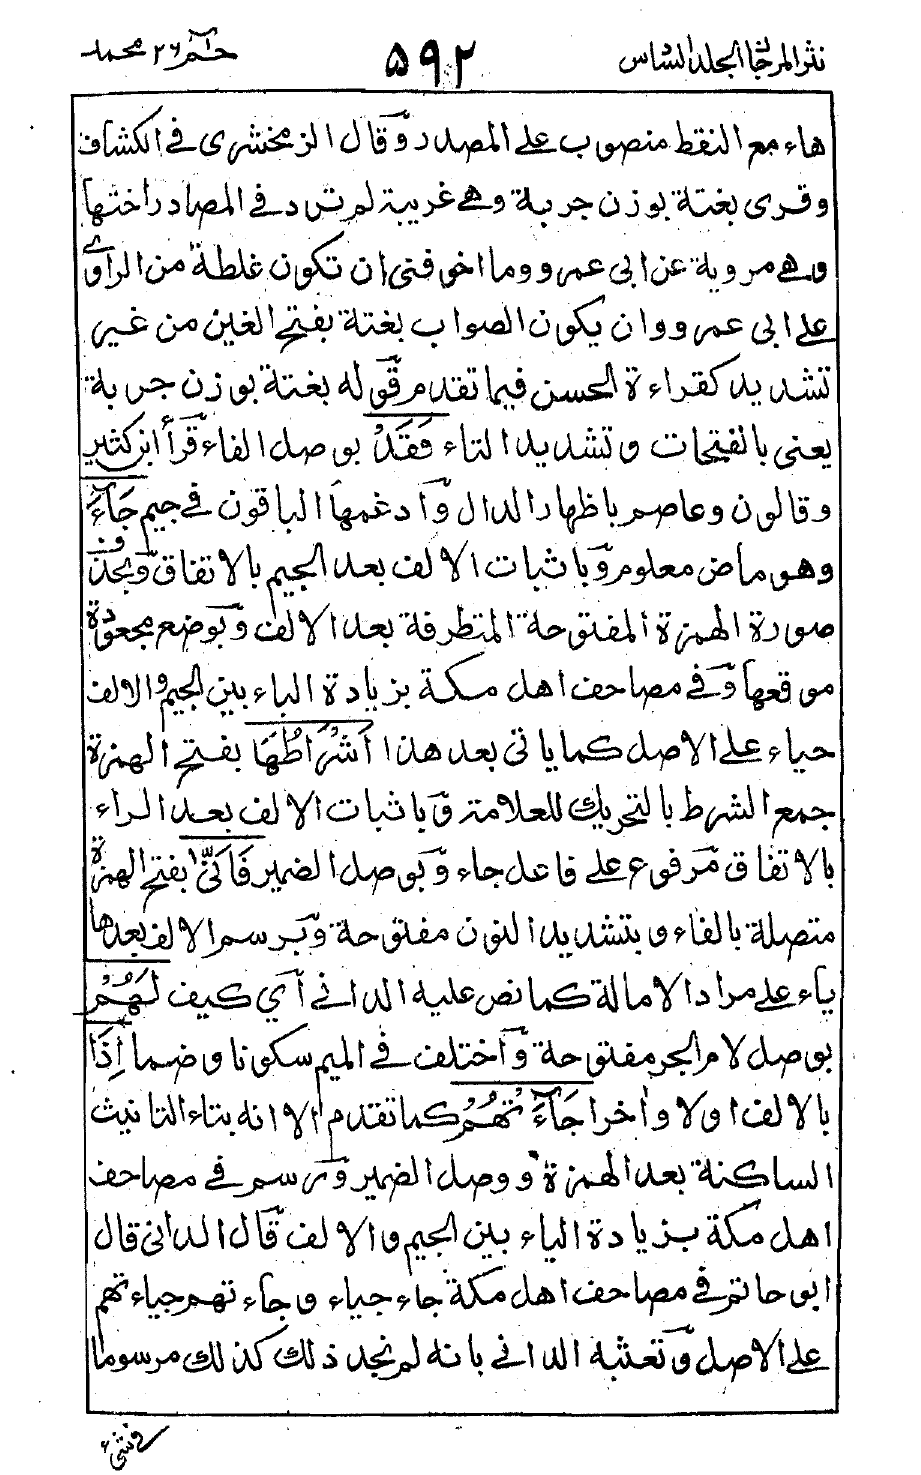 نثر المرجان المجلد السادس ٥٩٢ حٰم ٢٦ محمد
هاء مع النقط منصوب على المصدر وقال الزمخشرى فى الكشاف
وقرى بغتة بوزن جربة وهى غريبة لم ترد فى المصادر اختها
وهى مروية عن ابى عمرو وما اخوفنى ان تكون غلطة من الراوى
على ابى عمرو وان يكون الصواب بغتة بفتح الغين من غير
تشديد كقراءة الحسن فيما تقدم قوله بغتة بوزن جربة
يعنى بالفتحات وتشديد التاء فَقَدْ بوصل الفاء قرأ ابن كثير
وقالون وعاصم باظهار الدال وادغمها الباقون فى جيم جَآءَ
وهو ماض معلوم وباثبات الالف بعد الجيم بالاتفاق وبحذف
صورة الهمزة المفتوحة المتطرفة بعد الالف وبوضع مجعودة
موقعها وفى مصاحف اهل مكة بزيادة الياء بين الجيم والالف
جياء على الاصل كما ياتى بعد هذا اَشْرَاطُهَا بفتح الهمزة
جمع الشرط بالتحريك للعلامة وباثبات الالف بعد الراء
بالاتفاق مرفوع على فاعل جاء وبوصل الضمير فَاَنّٰى بفتح الهمزة
متصلة بالفاء وبتشديد النون مفتوحة وبرسم الالف بعدها
ياء على مراد الامالة كما نص عليه الدانى اى كيف لَهُمْ
بوصل لام الجر مفتوحة واختلف فى الميم سكونا وضما اِذَا
بالالف اولا واخرا جَآءَتْهُمْ كما تقدم الا انه بتاء التانيث
الساكنة بعد الهمزة ووصل الضمير ورسم فى مصاحف
اهل مكة بزيادة الياء بين الجيم والالف قال الدانى قال
ابو حاتم فى مصاحف اهل مكة جاء جياء وجاءتهم جياءتهم
على الاصل وتعقبه الدانى بانه لم نجد ذلك كذلك مرسوما
فى شىء